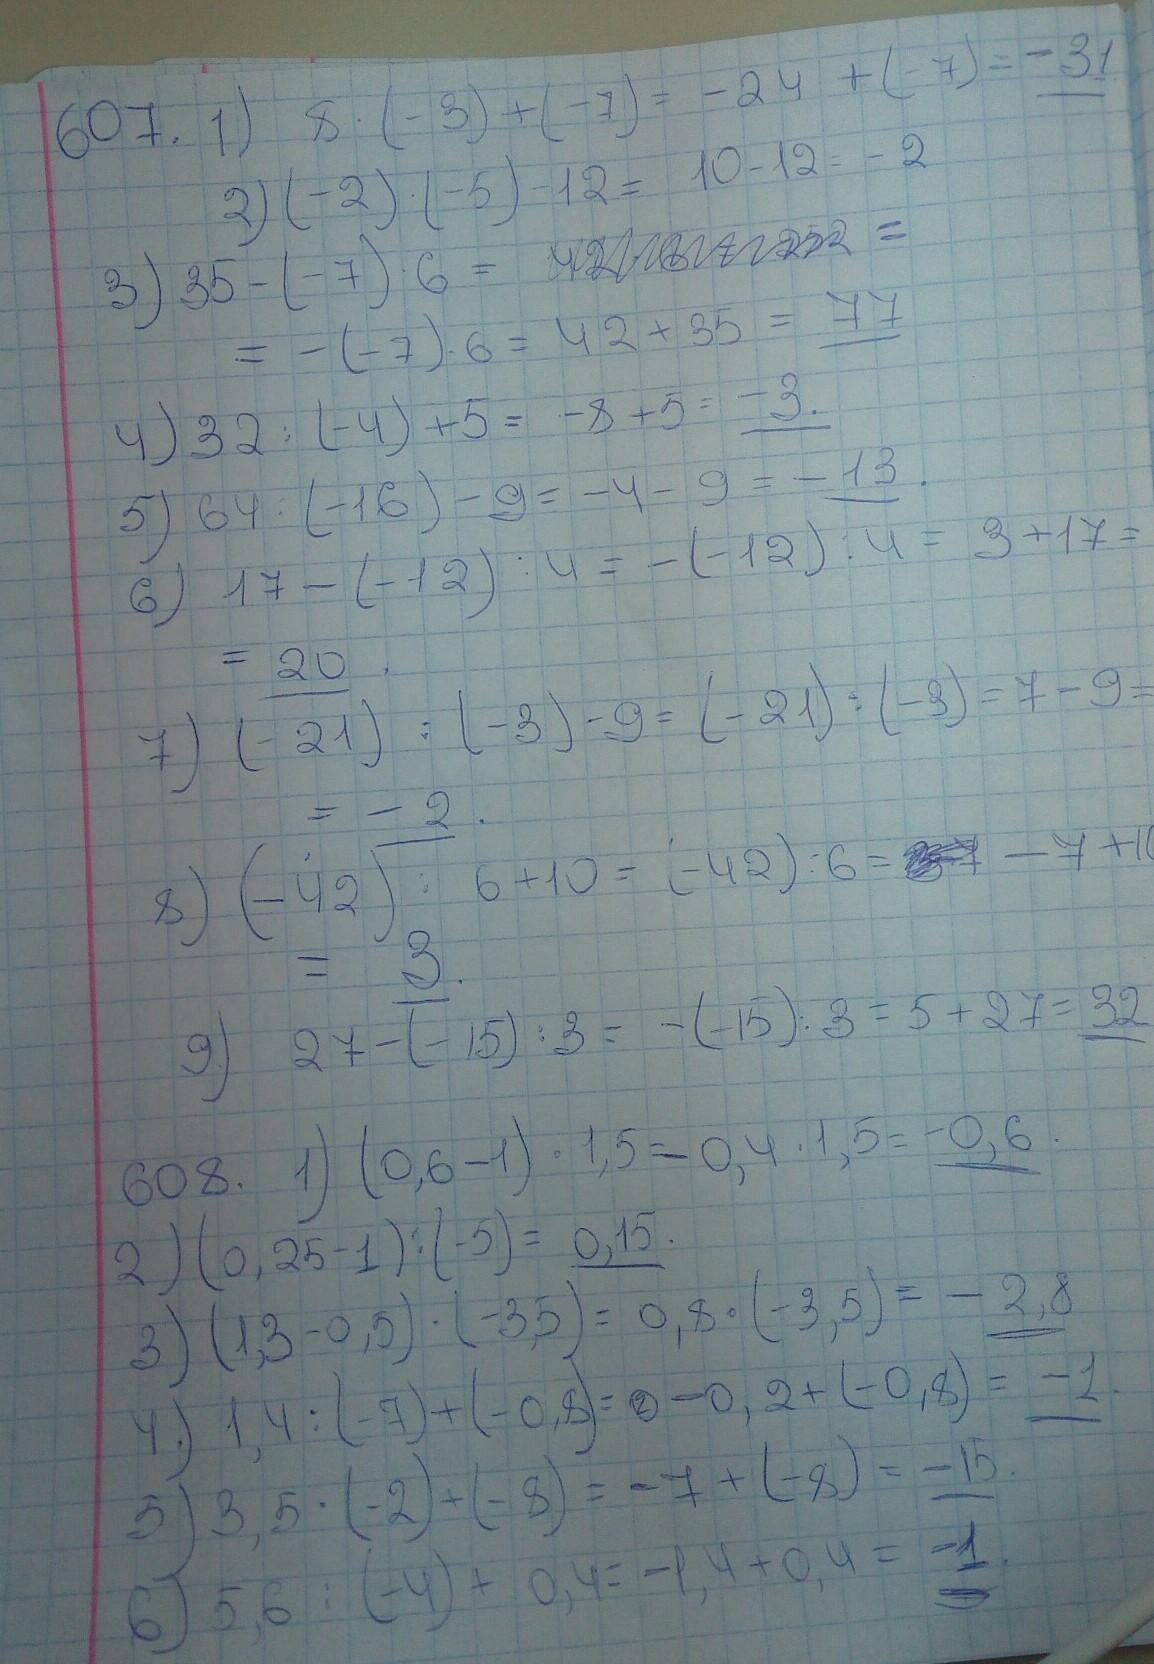 607. 1) 8 · (-3) + (-7) = -24 + (-7) = -31
2) (-2) · (-5) -12 = 10-12 = -2
3) 35 - (-7) · 6 = =
= -(-7) · 6 = 42 + 35 = 77
4) 32 : (-4) + 5 = -8 + 5 = -3.
5) 64 : (-16) - 9 = -4 - 9 = -13.
6) 17 - (-12) : 4 = -(-12) : 4 = 3 + 17 =
= 20.
7) (-21) : (-3) - 9 = (-21) : (-3) = 7 - 9 =
= -2.
8) (-42) : 6 + 10 = (-42) : 6 = -7 + 10
= 3.
9) 27 - (-15) : 3 = -(-15) : 3 = 5 + 27 = 32
608. 1) (0,6-1) · 1,5 = -0,4 · 1,5 = -0,6.
2) (0,25-1) : (-5) = 0,15.
3) (1,3-0,5) · (-3,5) = 0,8 · (-3,5) = -2,8
4.) 1,4 : (-7) + (-0,8) = -0,2 + (-0,8) = -1.
5) 3,5 · (-2) + (-8) = -7 + (-8) = -15.
6) 5,6 : (-4) + 0,4 = -1,4 + 0,4 = -1.